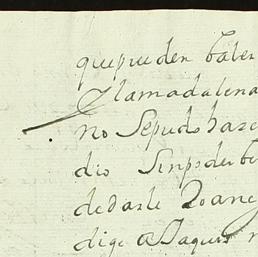 que pueden baler
Clamadalena
no Sepudo hase
dio Sinpoder be
dedarle Joane
dige a Jaques